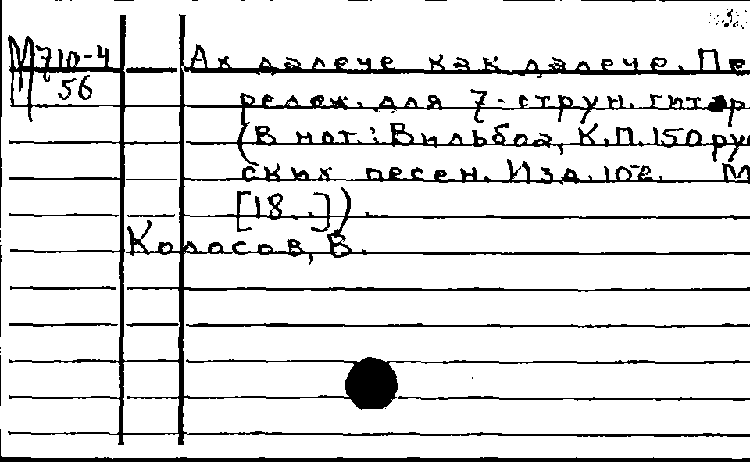 М 710-4
56
Ах далече как далече. Пе
релож. для 7-струн. гитар
(В нот.: Вильбоа, К.П. 150 рус
ских песен. Изд. 102. М
[18..]).
Колосов, В.